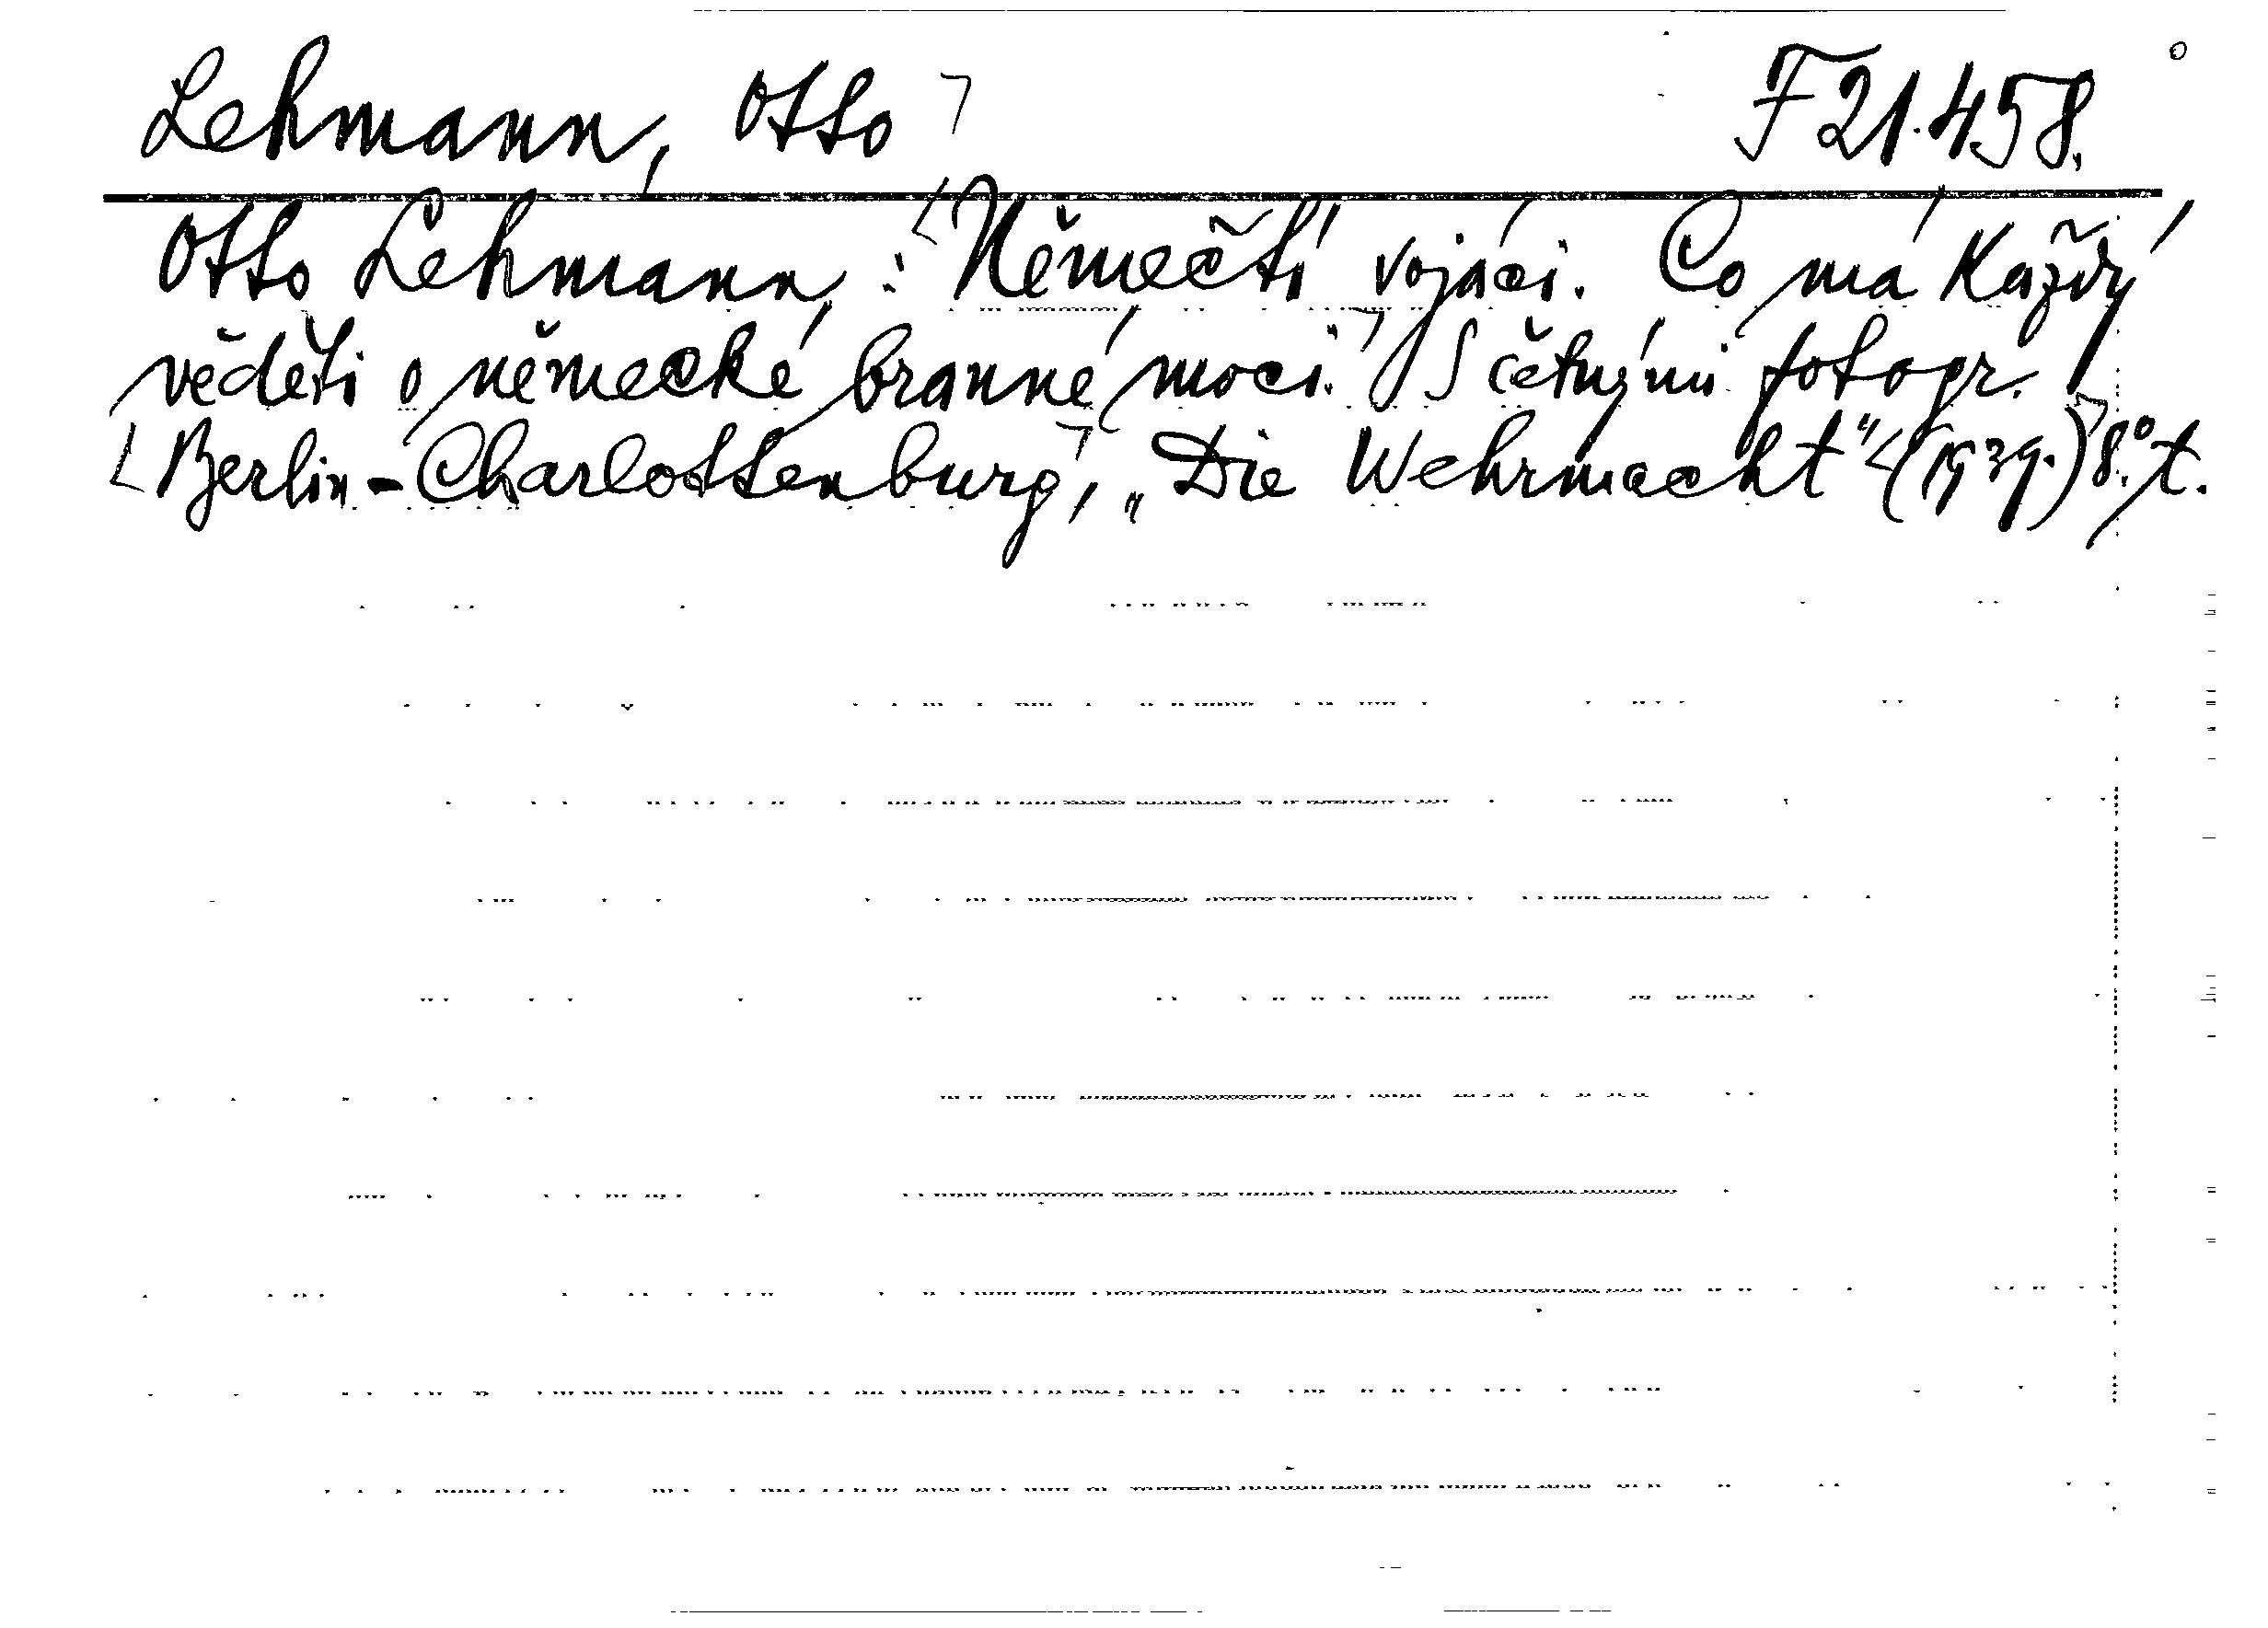 Lehmann, Otto F 21.458.
Otto Lehmann,: Němečtí vojáci. Co má každý
věděti o německé branné moci. S četnými fotogr.
Berlin-Charlottenburg, „Die Wehrmacht" (1939.) 8.° t.